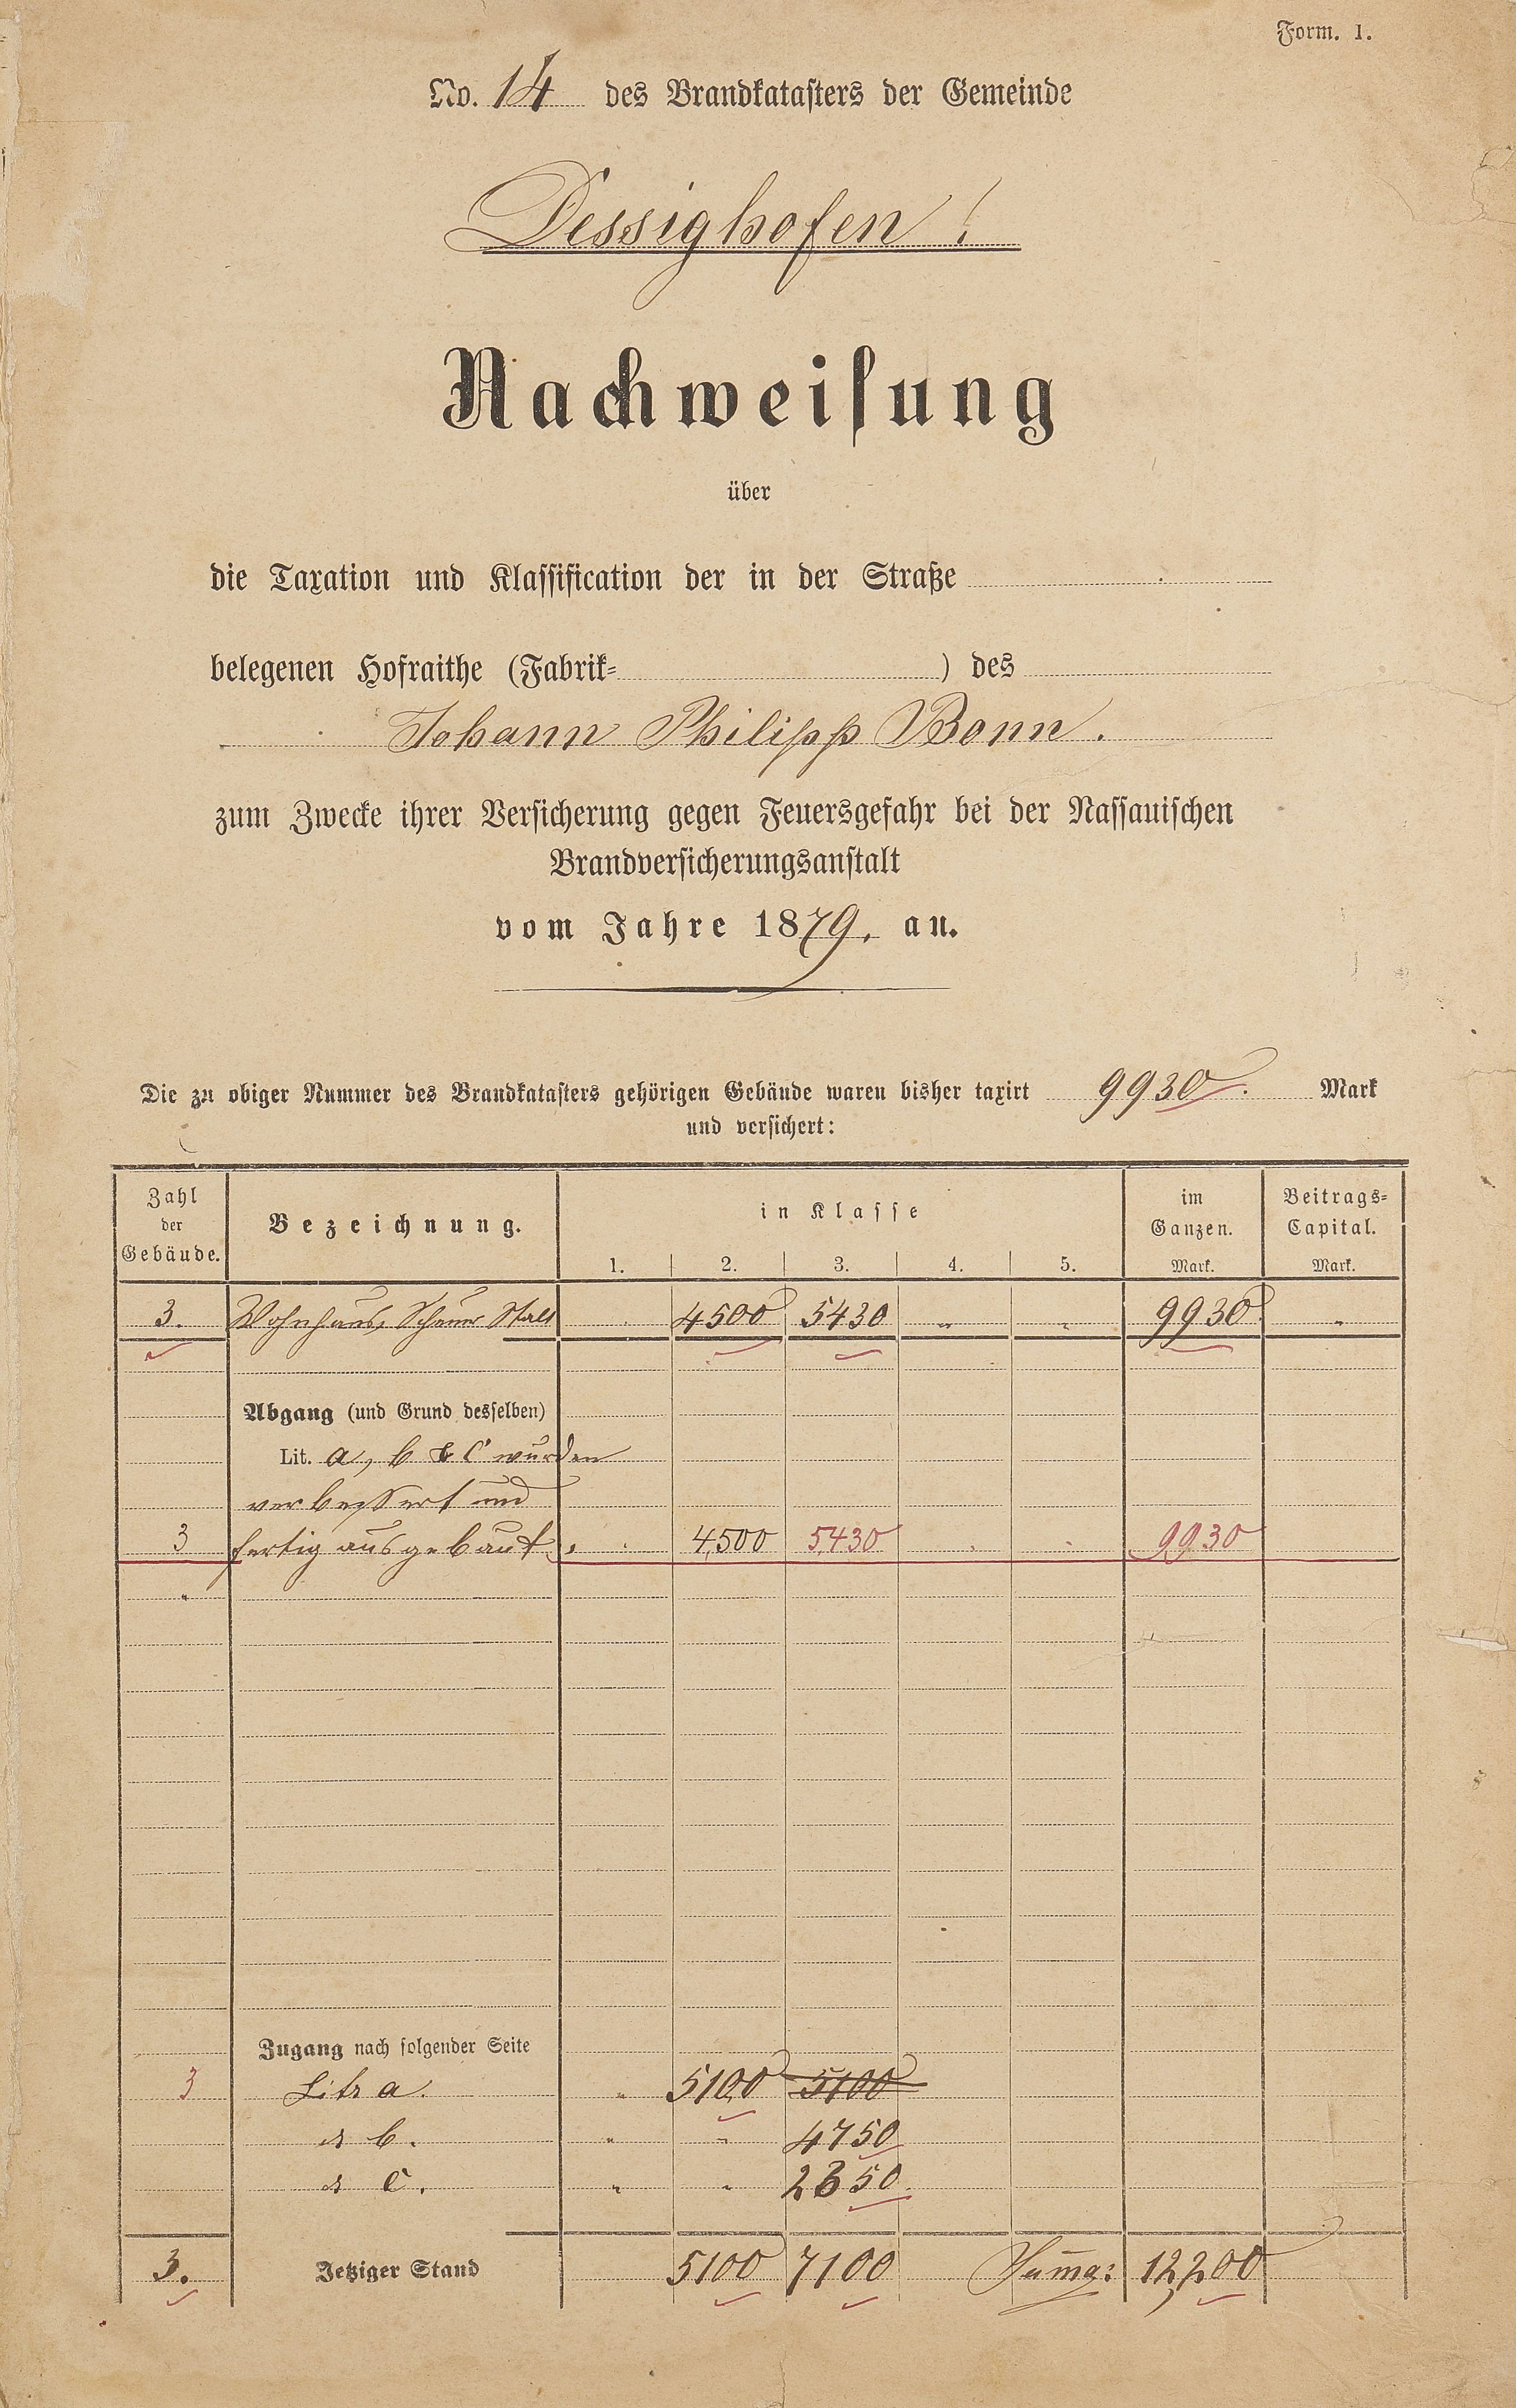 Form. 1.
No. 14 des Brandkatasters der Gemeinde
Dessighofen!
Nachweisung
über
die Taxation und Klassification der in der Straße
belegenen Hofraithe (Fabrik- ) des
Johann Philipp Bonn.
zum Zwecke ihrer Versicherung gegen Feuersgefahr bei der Nassauischen
Brandversicherungsanstalt
vom Jahre 1879. an.
Die zu obiger Nummer des Brandkatasters gehörigen Gebäude waren bisher taxirt 9930. Mark
und versichert:
Zahl der Gebäude. Bezeichnung. in Klasse im Ganzen. Beitrags-Capital.
1. 2. 3. 4. 5. Mark. Mark.
3. Wohnhaus, Scheuer Stall 4500 5430 " " 9930 "
Abgang (und Grund desselben)
Lit. a, b & c wurden
verbessert und
3 fertig ausgebaut 4,500 5,430 9,930
"
Zugang nach folgender Seite
3 Litr a. " 5100 5100
" b. " " 4750
" c. " " 2350
3. Jetziger Stand 5100 7100 Summa: 12,200